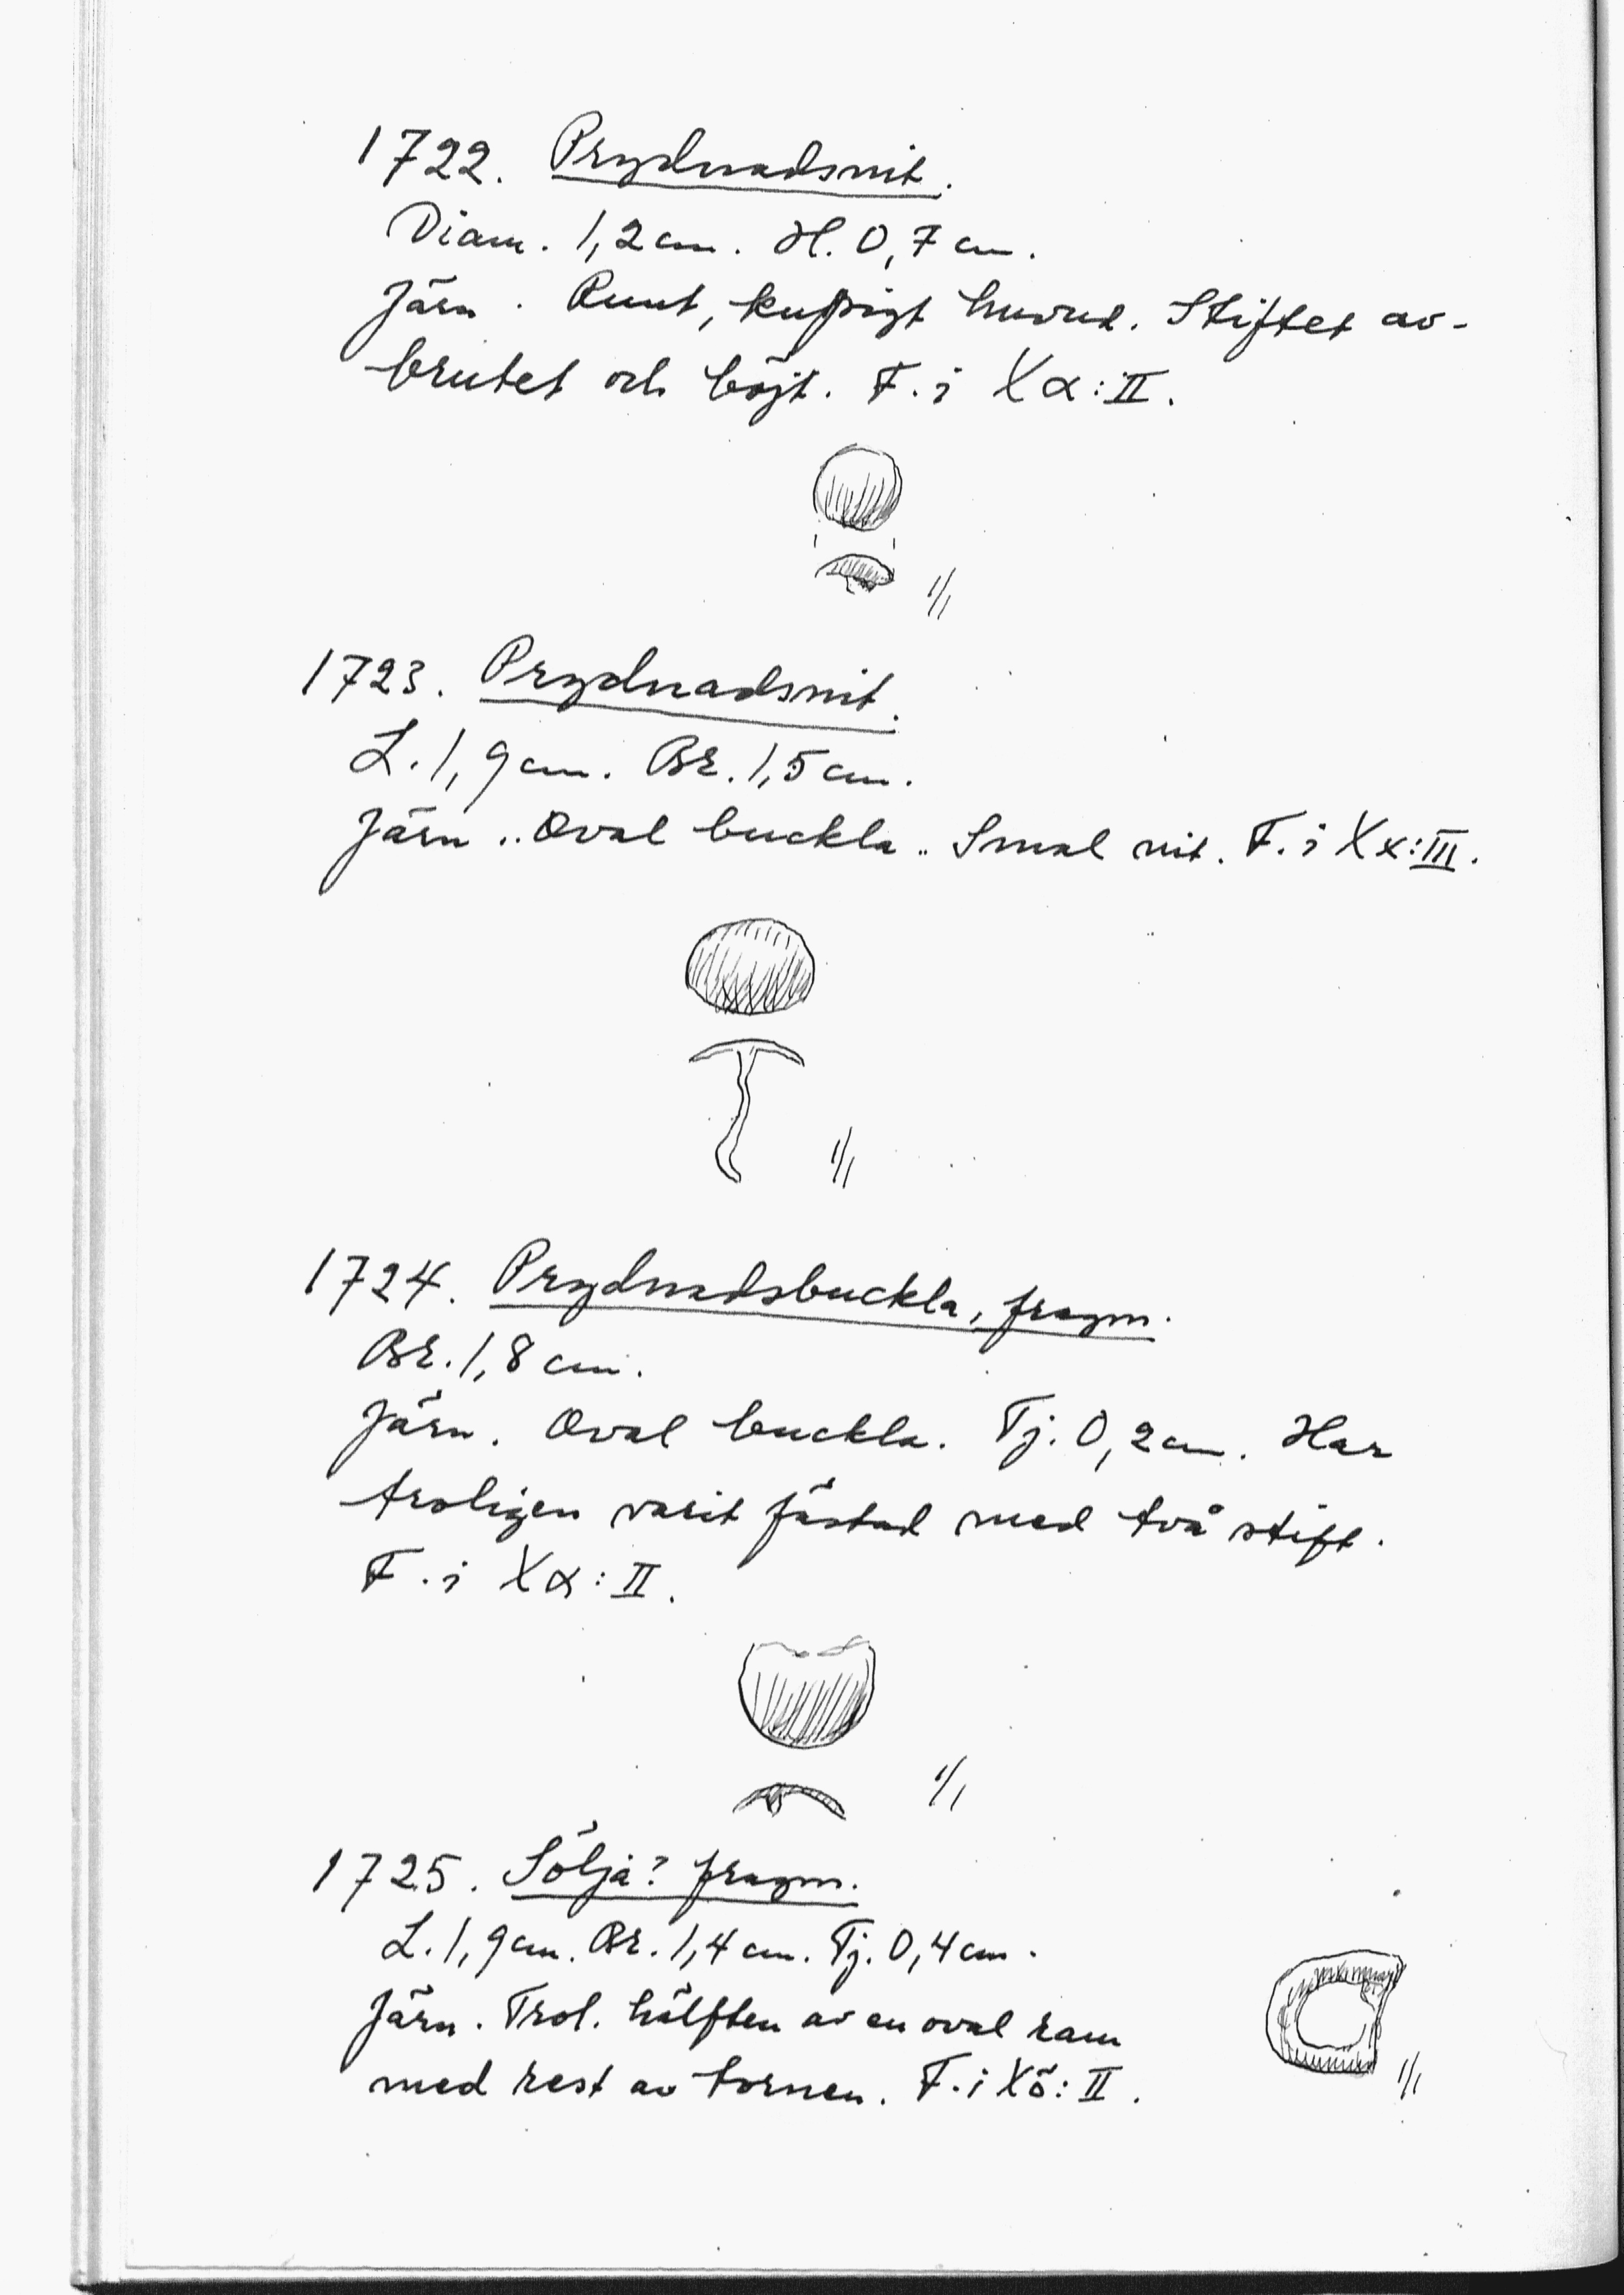 1722. Prydnadsnit.
Diam. 1,2 cm. H. 0,7 cm.
Järn. Runt, kupigt huvud. Stiftet av-
brutet och böjt. F. i Xα:II.
1/1
1723. Prydnadsnit.
L. 1,9 cm. Br. 1,5 cm.
Järn. Oval buckla. Smal nit. F. i Xα:III.
1/1
1724. Prydnadsbuckla, fragm.
Br. 1,8 cm.
Järn. Oval buckla. Tj. 0,2 cm. Har
troligen varit fästad med två stift.
F. i Xα:II.
1/1
1725. Sölja? fragm.
L. 1,9 cm. Br. 1,4 cm. Tj. 0,4 cm.
Järn. Trol. hälften av en oval ram
med rest av tornen. F. i Xö:II.
1/1